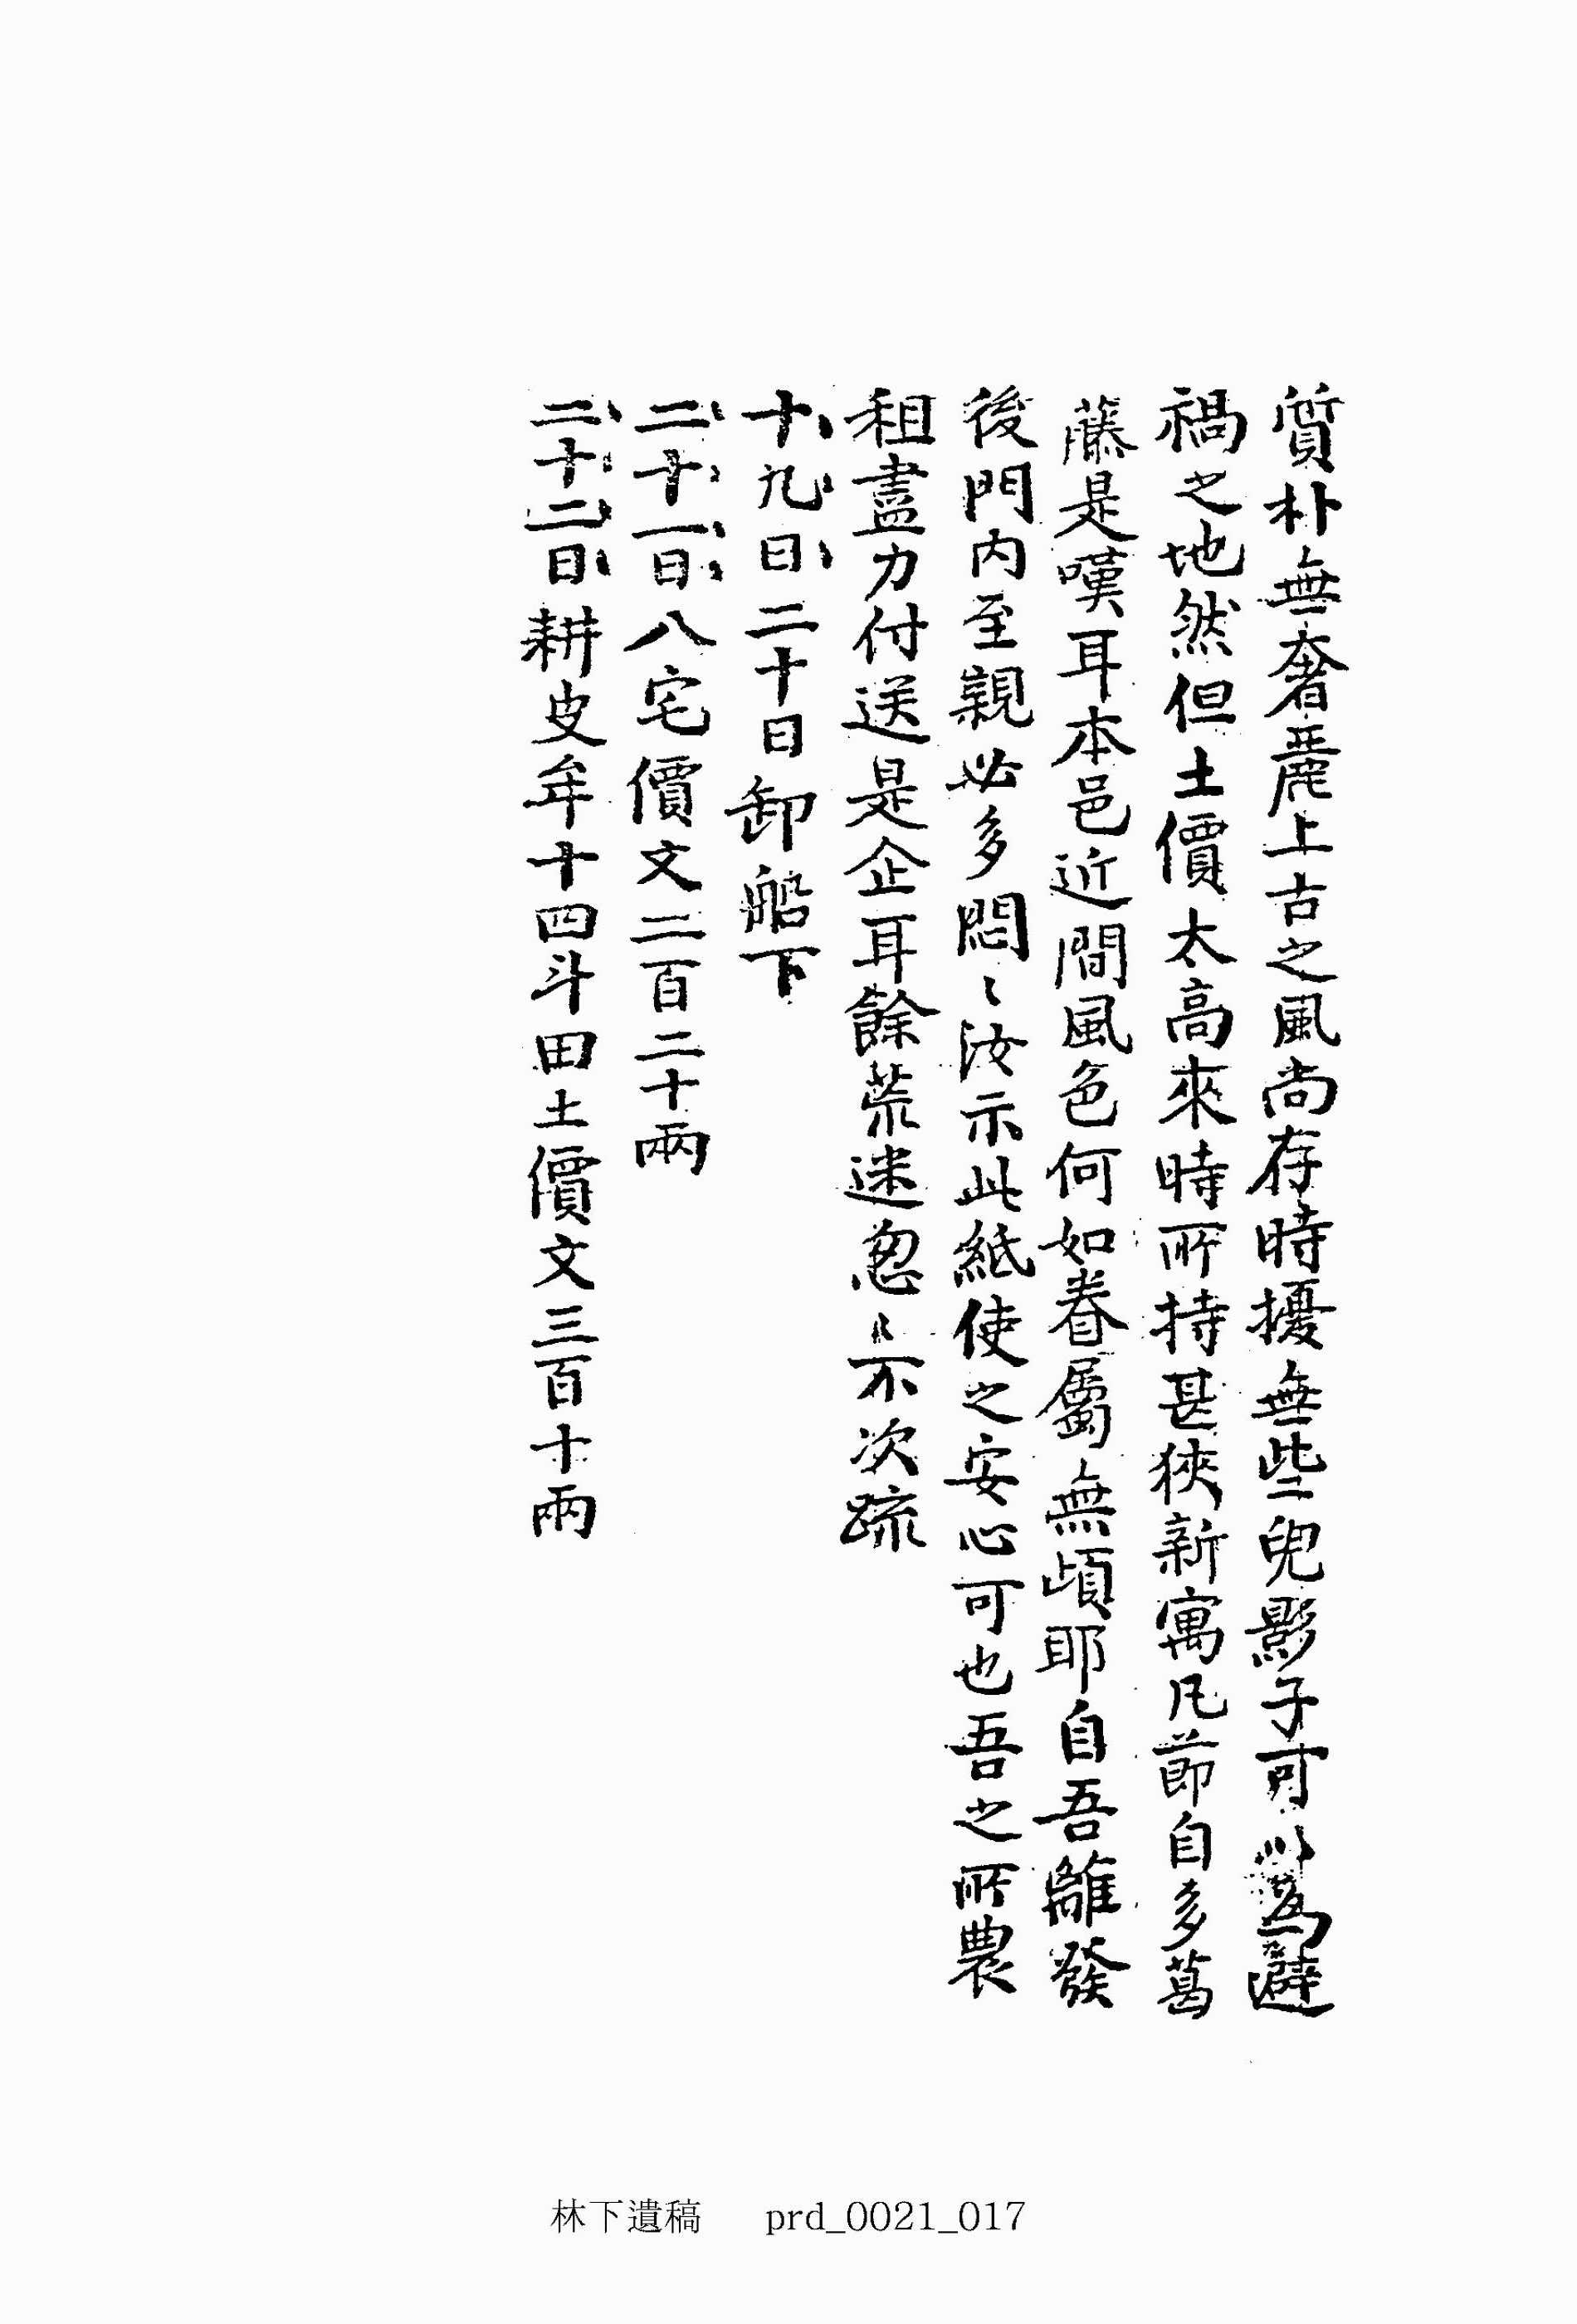 質朴無奢麗上古之風尚存時擾無些兒影子可以爲避
禍之地然但土價太高來時所持甚狹新寓凡節自多葛
藤是嘆耳本邑近間風色何如眷屬無頉耶自吾離發
後門内至親必多悶〻汝示此紙使之安心可也吾之所農
租盡力付送是企耳餘荒迷怱〻不次疏
十九日二十日卸船下
二十一日八宅價文二百二十兩
二十二日耕皮牟十四斗田土價文三百十兩
林下遺稿 prd_0021_017